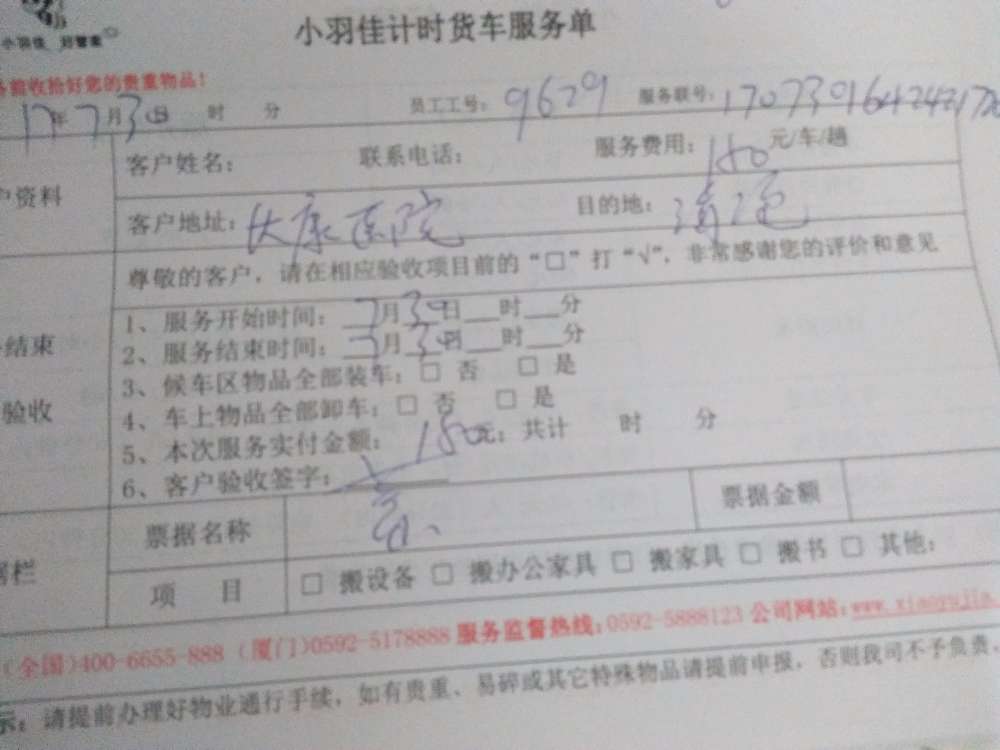 小羽佳计时货车服务单
小羽佳
前收拾好您的贵重物品！
17年7月30日 时 分 员工工号：9629 服务联号：
客户姓名： 联系电话： 服务费用：180元/车/趟
户资料
客户地址： 康医院 目的地：
尊敬的客户，请在相应验收项目前的“□”打“√”，非常感谢您的评价和意见
1、服务开始时间：7月30日__时__分
结束
2、服务结束时间：7月30日__时__分
3、候车区物品全部装车：□ 否 □ 是
验收
4、车上物品全部卸车：□ 否 □ 是
5、本次服务实付金额：180元；共计 时 分
6、客户验收签字：
票据名称 票据金额
栏
项 目 □ 搬设备 □ 搬办公家具 □ 搬家具 □ 搬书 □ 其他：
（全国）400-6655-888（厦门）0592-5178888 服务监督热线：0592-5888123 公司网站：www.xiaoyujia.
示：请提前办理好物业通行手续，如有贵重、易碎或其它特殊物品请提前申报，否则我司不予负责.